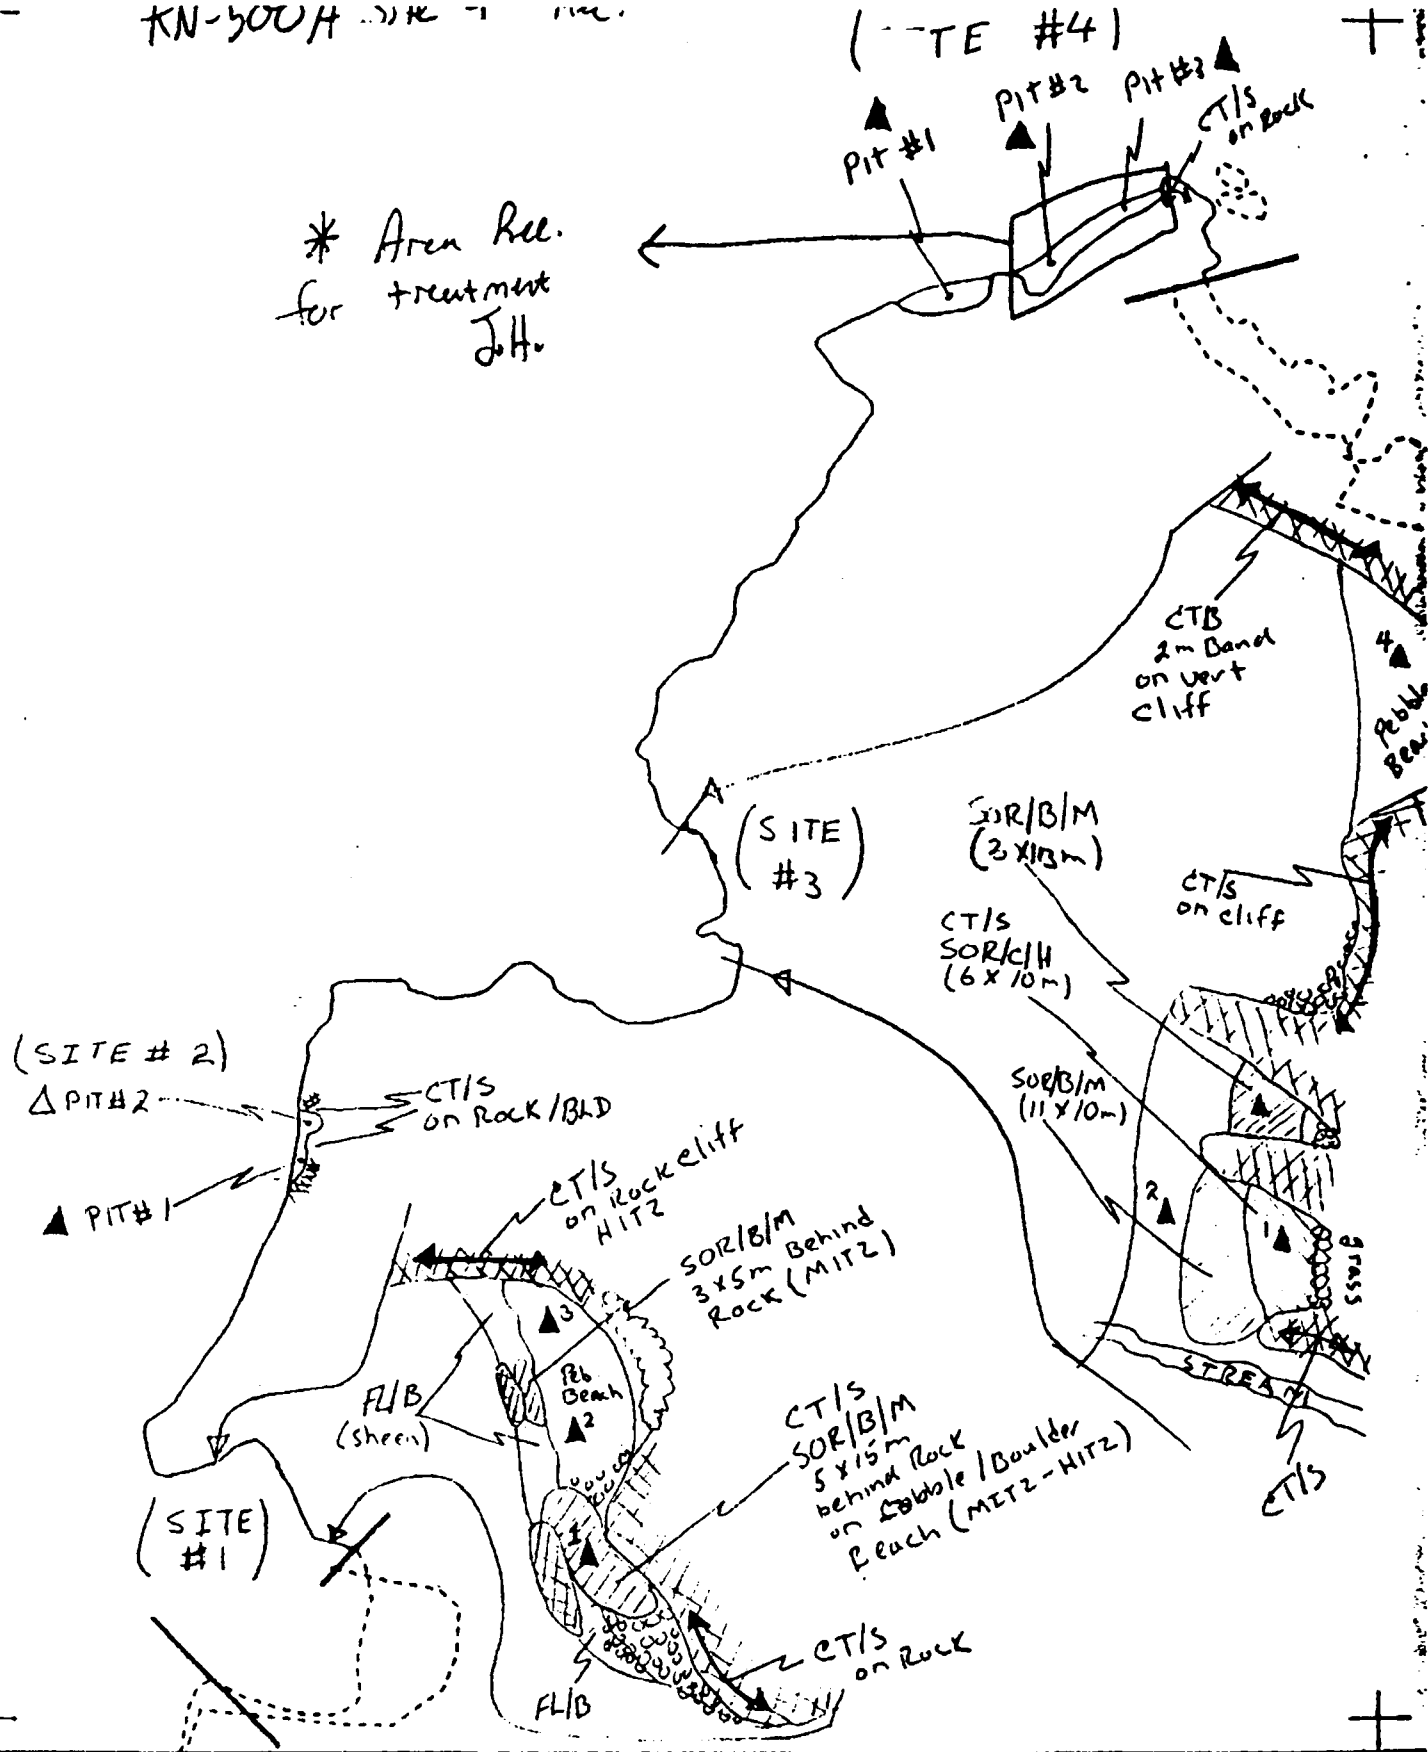 KN-500A
TE #4)
Pit #1
Pit #2
Pit #3
CT/S
on Rock
* Area Rec.
for treatment
J.H.
CTB
2m Band
on vert
cliff
4
Pebble
(SITE
#3)
SOR/B/M
CT/S
on cliff
CT/S
SOR/C/H
(6 X 10m)
SOR/B/M
(11 X 10m)
2
1
grass
STREAM
CT/S
(SITE # 2)
PIT#2
CT/S
on Rock/BLD
PIT#1
CT/S
on Rock cliff
HITZ
SOR/B/M
3x5m Behind
Rock (MITZ)
3
Peb
Beach
2
FL/B
(sheen)
CT/S
SOR/B/M
5 x 15m
behind Rock
on Cobble/Boulder
Beach (MITZ-HITZ)
1
(SITE
#1)
FL/B
CT/S
on Rock